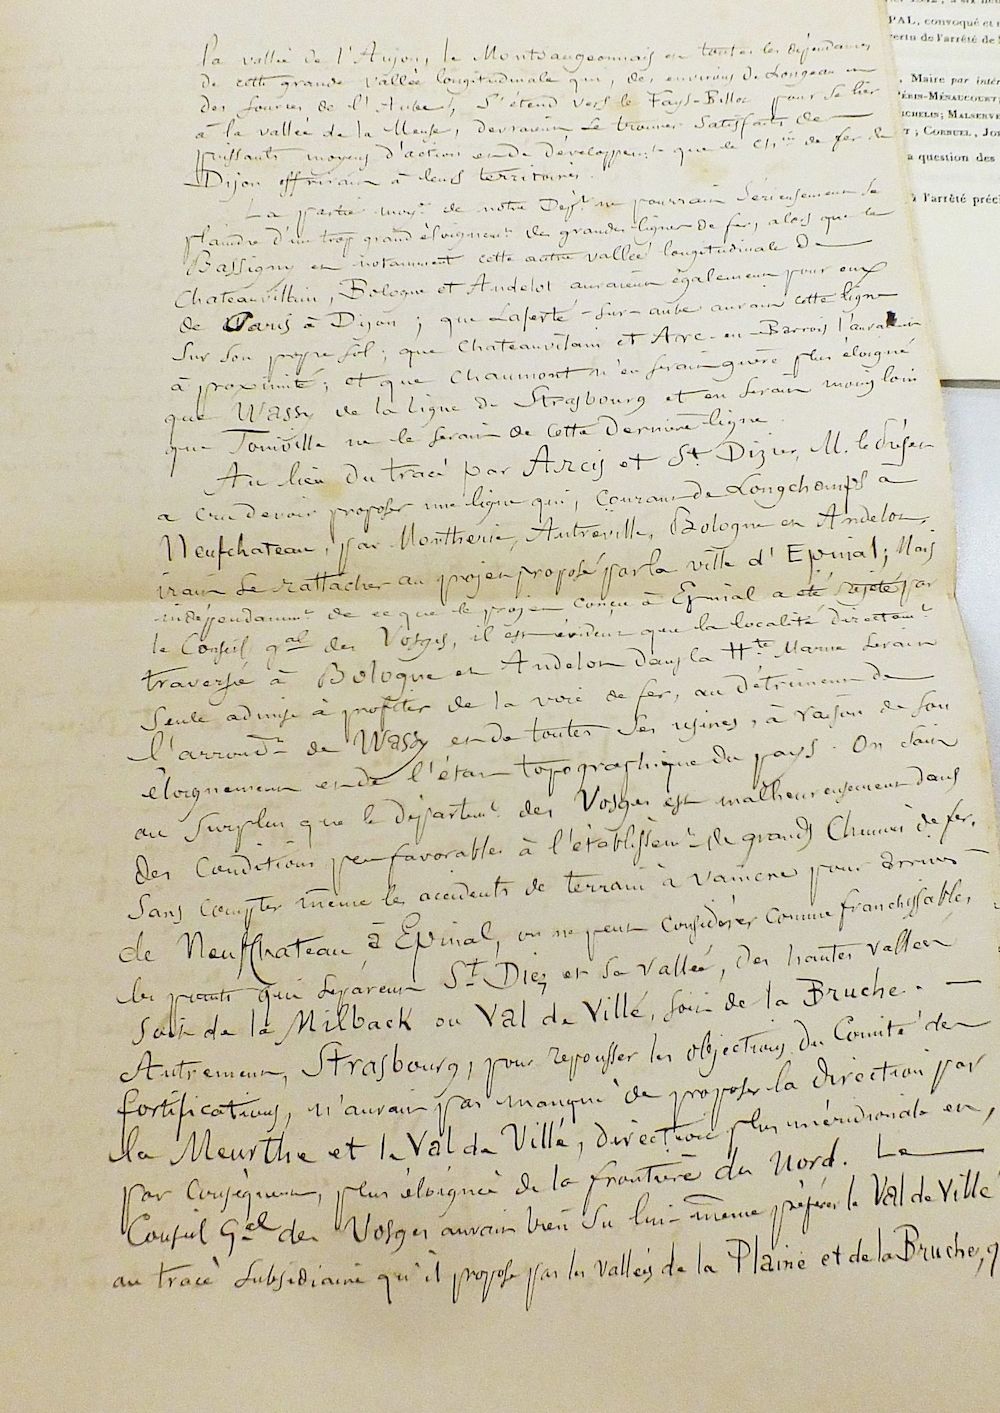 la vallée de l'Aujon, le Montsaugeonnais et toutes les dépendances
de cette grande vallée longitudinale qui, des environs de Longeau et
des sources de l'Aube, s'étend vers le Fays-Billot pour se lier
à la vallée de la Meuse, devraient se trouver satisfaits des
puissants moyens d'action et de développemt que le chin de fer de
Dijon offrirait à leurs territoires.
La partie moyne de notre Dept ne pourrait sérieusement se
plaindre d'un trop grand éloignemt des grandes lignes de fer, alors que le
Bassigny et notamment cette autre vallée longitudinale de
Chateauvillain, Bologne et Andelot auraient également pour eux
de Paris à Dijon ; que Laferté-sur-aube aurait cette ligne
sur son propre sol ; que Chateauvilain et Arc-en-Barrois l'auraient
à proximité ; et que Chaumont n'en serait guère plus éloigné
que Wassy de la ligne de Strasbourg et en serait moins loin
que Joinville ne le serait de cette dernière ligne.
Au lieu du tracé par Arcis et St. Dizier, M. le Préfet
a cru devoir proposer une ligne qui, courant de Longchamps à
Neufchateau, par Montherie, Autreville, Bologne et Andelot,
irait se rattacher au projet proposé par la ville d'Epinal ; Mais
indépendammt de ce que le projet conçu à Epinal a été rejeté par
le Conseil gal des Vosges, il est évident que la localité directemt
traversée à Bologne et Andelot dans la Hte Marne serait
seule admise à profiter de la voie de fer, au détriment de
l'arrondt de Wassy et de toutes ses usines, à raison de son
éloignement et de l'état topographique du pays. On sait
au surplus que le départemt des Vosges est malheureusement dans
des conditions peu favorables à l'établissemt de grands Chemins de fer.
Sans compter même les accidents de terrain à vaincre pour arriver
de Neufchateau à Epinal, on ne peut considérer comme franchissables
les points qui séparent St. Diez et sa vallée, des hautes vallées
soit de la Milback ou Val de Villé, soit de la Bruche. —
Autrement, Strasbourg, pour repousser les objections du Comité des
fortifications, n'aurait pas manqué de proposer la direction par
la Meurthe et le Val de Villé, direction plus méridionale et,
par conséquent, plus éloignée de la frontière du Nord. Le
Conseil Gal des Vosges aurait bien su lui-même préférer le Val de Villé
au tracé subsidiaire qu'il propose par les vallées de la Plaine et de la Bruche, q
PAL, convoqué et
ertu de l'arrêté de
, Maire par intér
PÉRIN-MÉNAUCOURT
ICHELIN; MALSERVE
T ; CORNUEL, JO
a question des
à l'arrêté préci